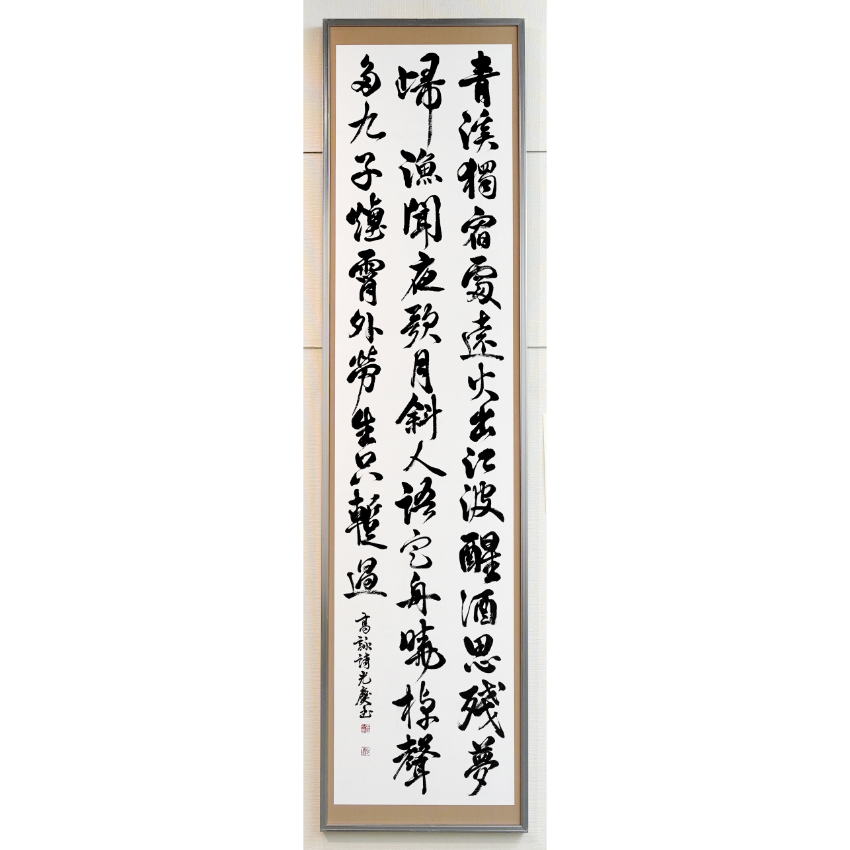 青溪獨宿處遠火出江波醒酒思殘夢
歸漁聞夜歌月斜人語定舟曉棹聲
多九子煙霄外勞生只暫過
高詠詩光慶書